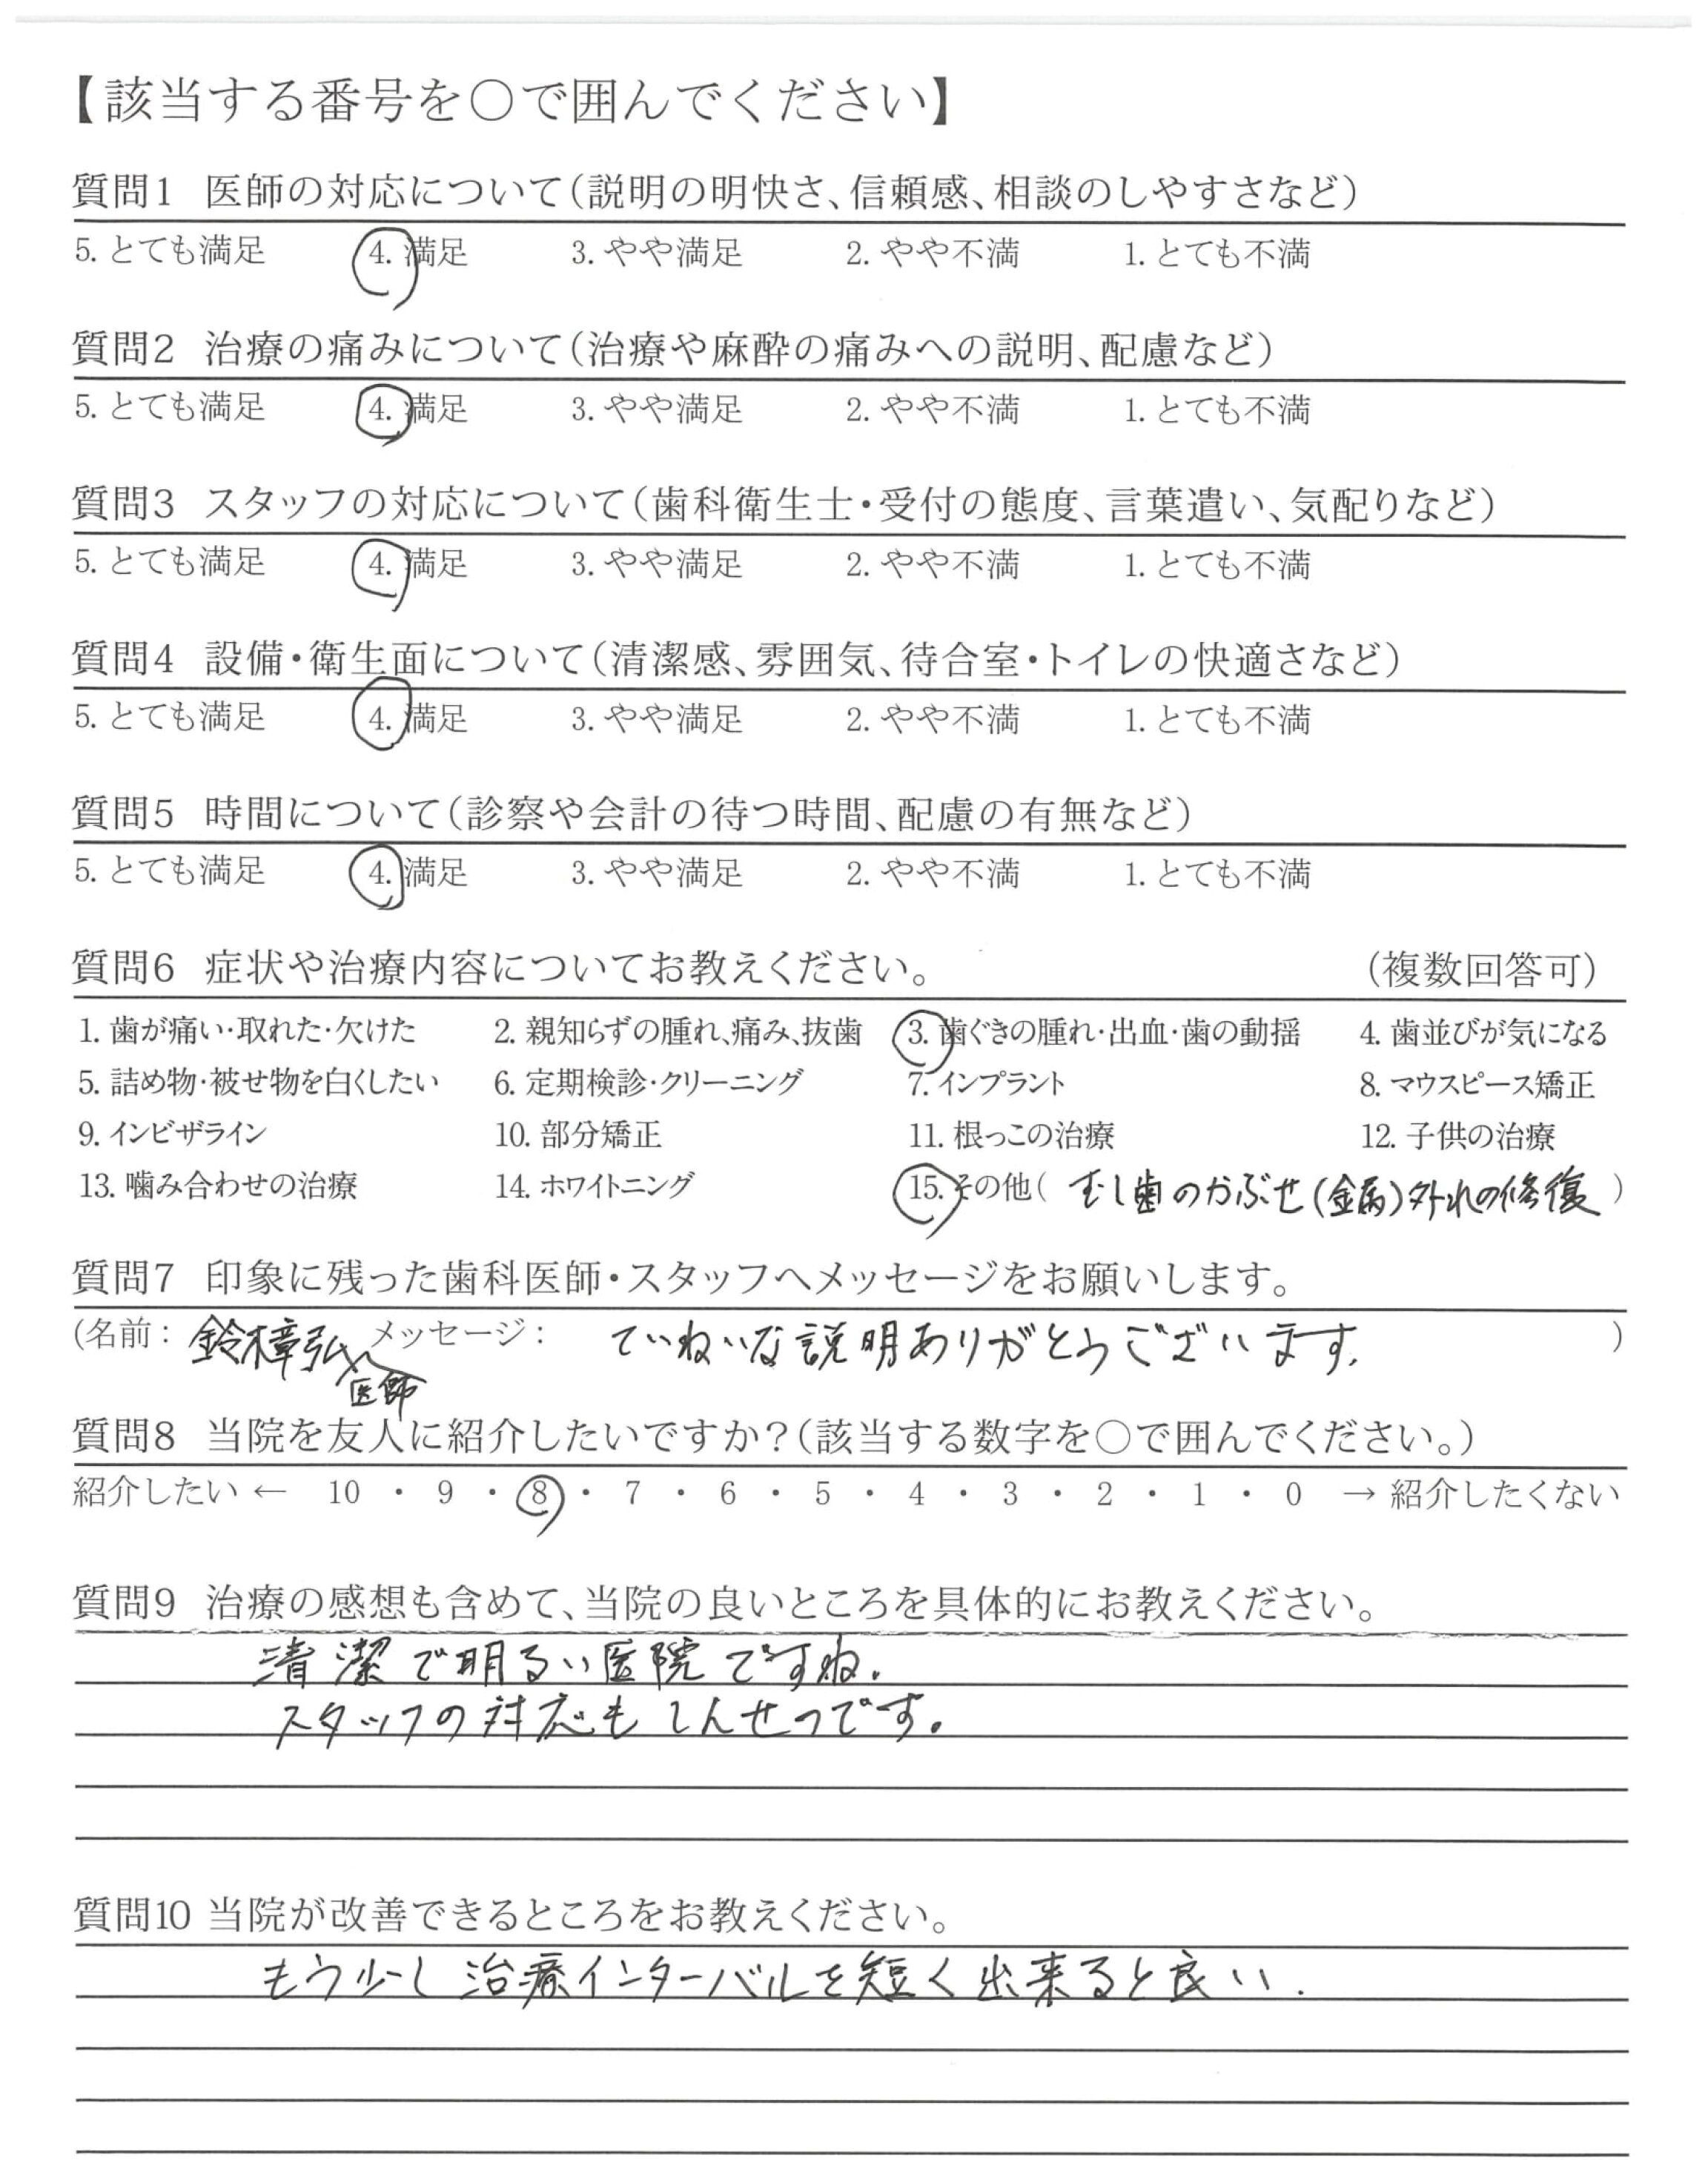 【該当する番号を○で囲んでください】
質問1 医師の対応について(説明の明快さ、信頼感、相談のしやすさなど)
5. とても満足 4. 満足 3. やや満足 2. やや不満 1. とても不満
質問2 治療の痛みについて(治療や麻酔の痛みへの説明、配慮など)
5. とても満足 4. 満足 3. やや満足 2. やや不満 1. とても不満
質問3 スタッフの対応について(歯科衛生士・受付の態度、言葉遣い、気配りなど)
5. とても満足 4. 満足 3. やや満足 2. やや不満 1. とても不満
質問4 設備・衛生面について(清潔感、雰囲気、待合室・トイレの快適さなど)
5. とても満足 4. 満足 3. やや満足 2. やや不満 1. とても不満
質問5 時間について(診察や会計の待つ時間、配慮の有無など)
5. とても満足 4. 満足 3. やや満足 2. やや不満 1. とても不満
質問6 症状や治療内容についてお教えください。 (複数回答可)
1. 歯が痛い・取れた・欠けた 2. 親知らずの腫れ、痛み、抜歯 3. 歯ぐきの腫れ・出血・歯の動揺 4. 歯並びが気になる
5. 詰め物・被せ物を白くしたい 6. 定期検診・クリーニング 7. インプラント 8. マウスピース矯正
9. インビザライン 10. 部分矯正 11. 根っこの治療 12. 子供の治療
13. 噛み合わせの治療 14. ホワイトニング 15. その他( むし歯のかぶせ(金属)外れの修復 )
質問7 印象に残った歯科医師・スタッフへメッセージをお願いします。
(名前: 鈴木章弘 メッセージ: ていねいな説明ありがとうございます. )
医師
質問8 当院を友人に紹介したいですか?(該当する数字を○で囲んでください。)
紹介したい ← 10 ・ 9 ・ 8 ・ 7 ・ 6 ・ 5 ・ 4 ・ 3 ・ 2 ・ 1 ・ 0 → 紹介したくない
質問9 治療の感想も含めて、当院の良いところを具体的にお教えください。
清潔で明るい医院ですね.
スタッフの対応もしんせつです。
質問10 当院が改善できるところをお教えください。
もう少し治療インターバルを短く出来ると良い.